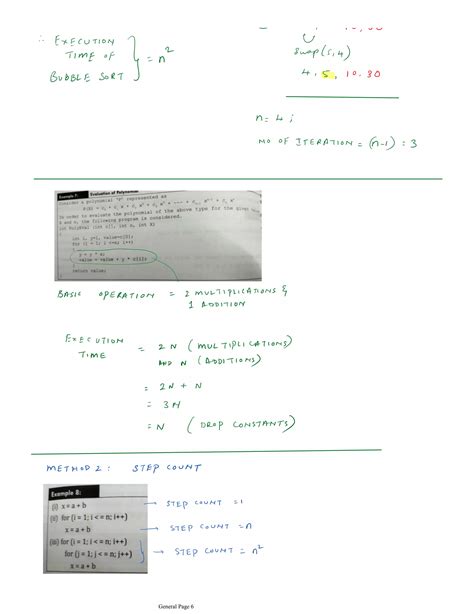 ∴ EXECUTION
TIME OF
BUBBLE SORT } = n²
Swap(5,4)
4, 5, 10, 30
n = 4 ;
NO OF ITERATION = (n-1) = 3
Example 7: Evaluation of Polynomial
Consider a polynomial "P" represented as
In order to evaluate the polynomial of the above type for the given
and n, the following program is considered.
int PolyEval (int c[], int n, int X)
{
int i, y=1, value=c[0];
for (i = 1; i <=n; i++)
{
y = y * x;
value = value + y * c[i];
}
return value;
}
BASIC OPERATION = 2 MULTIPLICATIONS &
1 ADDITION
EXECUTION
TIME = 2N (MULTIPLICATIONS)
AND N (ADDITIONS)
= 2N + N
= 3N
= N (DROP CONSTANTS)
METHOD 2: STEP COUNT
Example 8:
(i) x = a + b → STEP COUNT = 1
(ii) for (i = 1; i < = n; i++)
x = a + b → STEP COUNT = n
(iii) for (i = 1; i < = n; i++)
for (j = 1; j < = n; j++) → STEP COUNT = n²
x = a + b
General Page 6